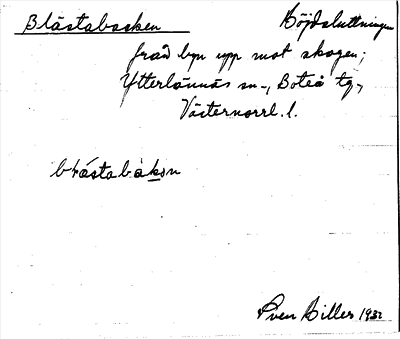 Blåstabacken Höjdsluttningen
från byn upp mot skogen;
Ytterlännäs sn., Boteå tg.,
Västernorrl. l.
blåstabàkən
Sven Hiller 1932